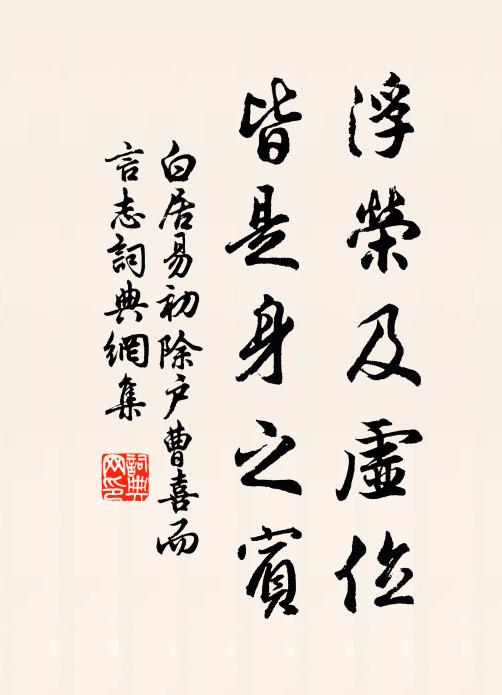 浮榮及虛位
皆是身之賓
白居易初除戶曹喜而
言志詞典網集
詞典
网印